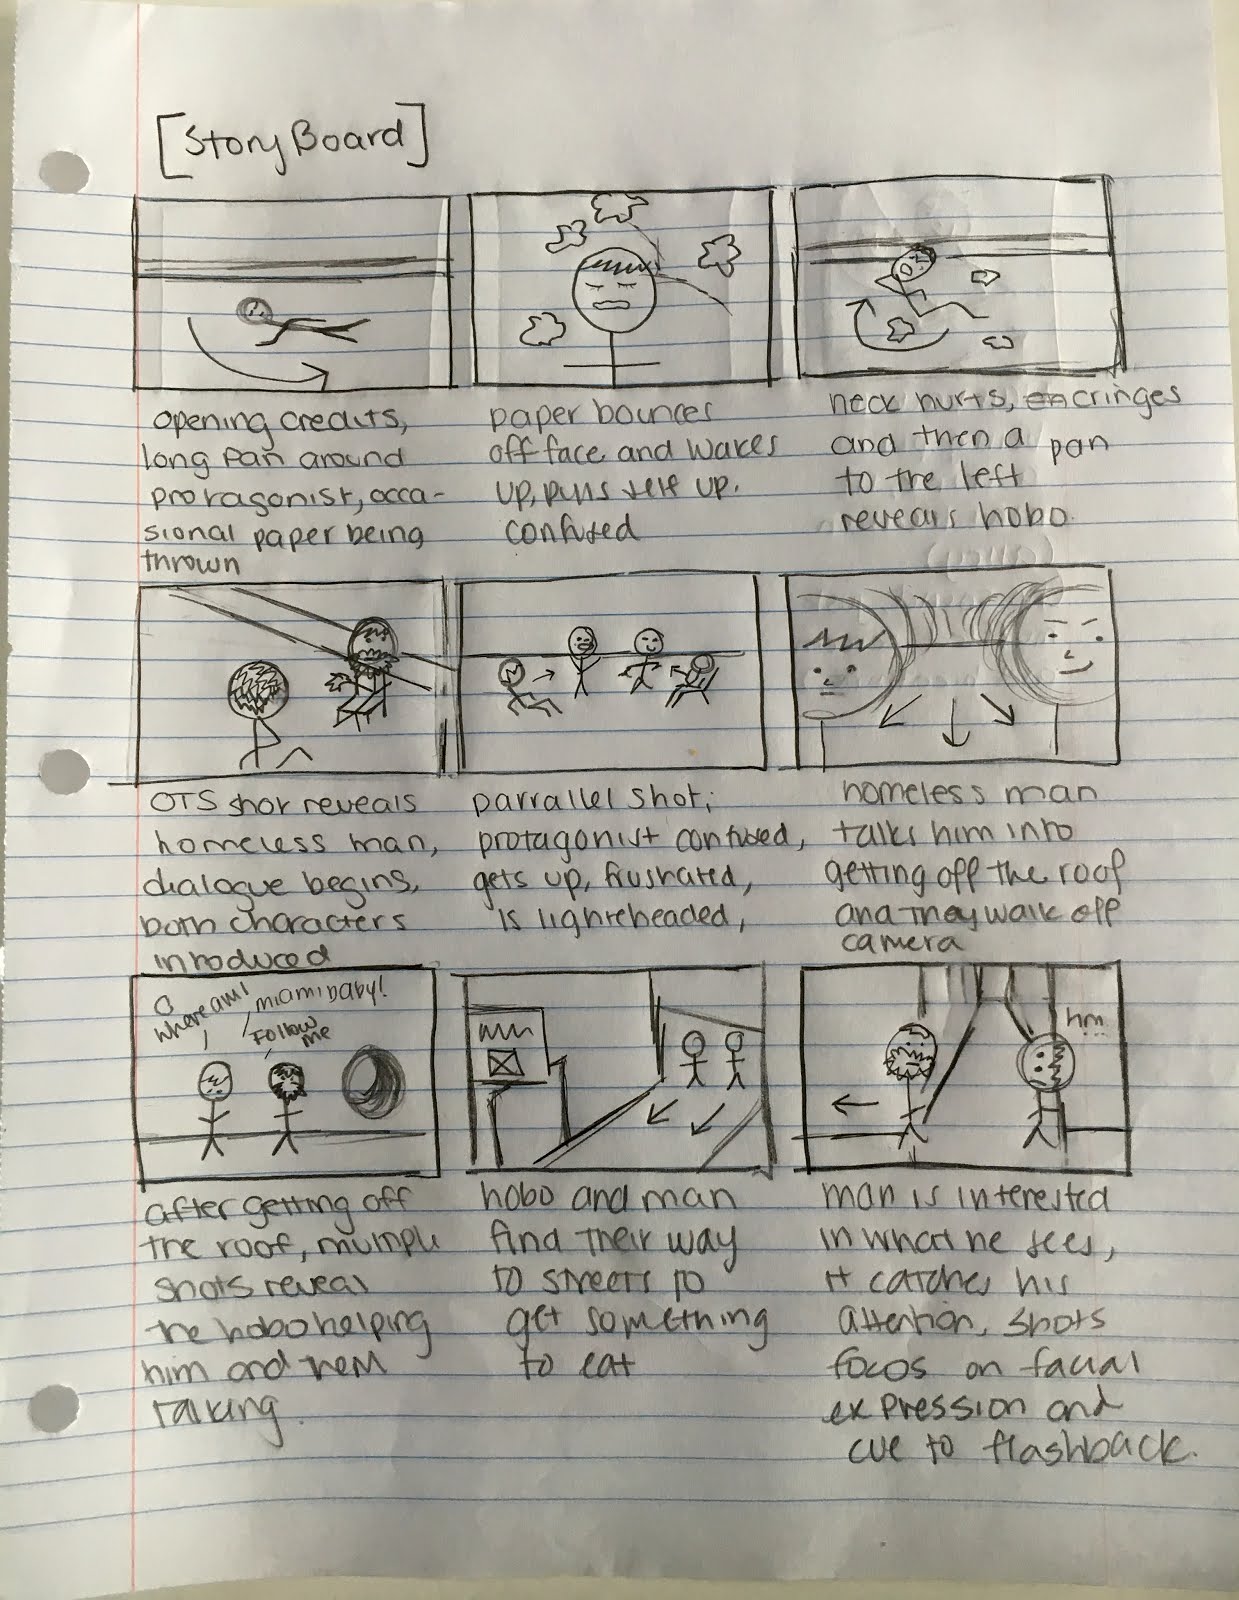 [Story Board]
opening credits,
long pan around
protagonist, occa-
sional paper being
thrown
paper bounces
off face and wakes
up, pulls self up.
confused
neck hurts, cringes
and then a pan
to the left
reveals hobo.
OTS shot reveals
homeless man,
dialogue begins,
both characters
introduced
parrallel shot;
protagonist confused,
gets up, frustrated,
is lightheaded,
homeless man
talks him into
getting off the roof
and they walk off
camera
Where am I
miami baby!
Follow
me
after getting off
the roof, multiple
shots reveal
the hobo helping
him and them
talking.
hobo and man
find their way
to streets to
get something
to eat
hm
...
man is interested
in what he sees,
it catches his
attention, shots
focos on facial
expression and
cue to flashback.